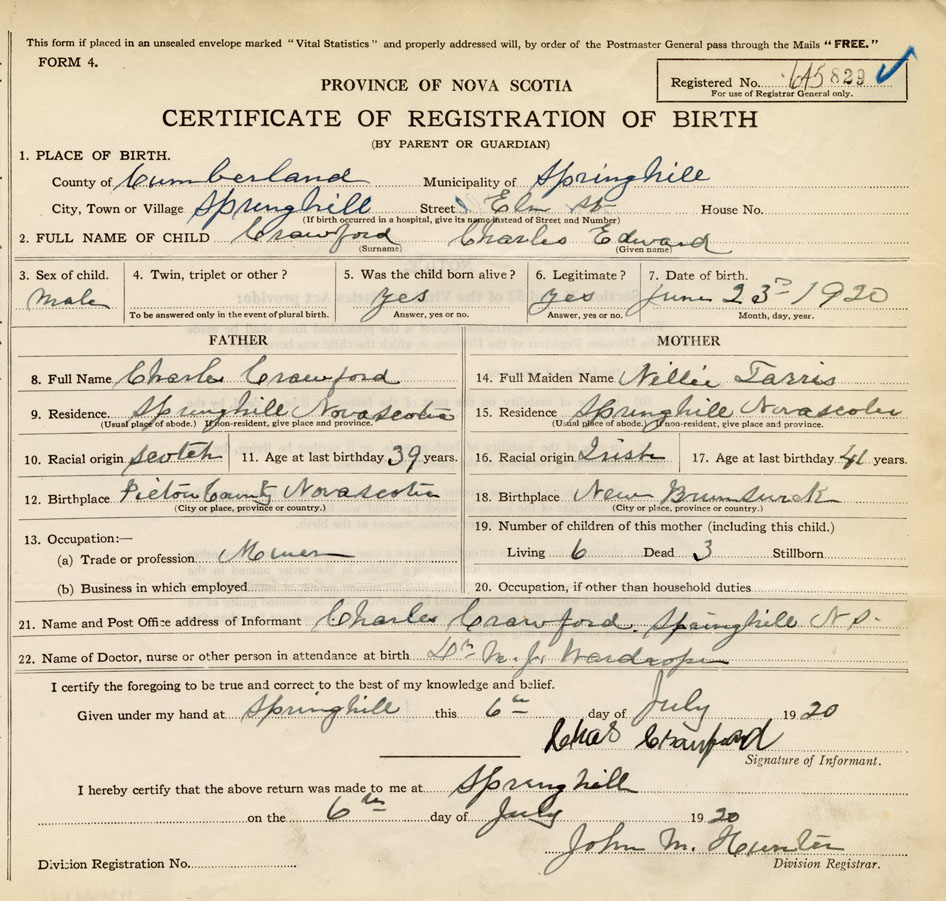 This form if placed in an unsealed envelope marked "Vital Statistics" and properly addressed will, by order of the Postmaster General pass through the Mails "FREE."
FORM 4.
Registered No. 645829
For use of Registrar General only.
PROVINCE OF NOVA SCOTIA
CERTIFICATE OF REGISTRATION OF BIRTH
(BY PARENT OR GUARDIAN)
1. PLACE OF BIRTH.
County of Cumberland Municipality of Springhill
City, Town or Village Springhill Street Elm St House No.
(If birth occurred in a hospital, give its name instead of Street and Number)
2. FULL NAME OF CHILD Crawford Charles Edward
(Surname) (Given name)
3. Sex of child. 4. Twin, triplet or other? 5. Was the child born alive? 6. Legitimate? 7. Date of birth.
Male yes yes June 23rd 1920
To be answered only in the event of plural birth. Answer, yes or no. Answer, yes or no. Month, day, year.
FATHER MOTHER
8. Full Name Charles Crawford 14. Full Maiden Name Nillie Tarris
9. Residence. Springhill Novascotia 15. Residence Springhill Novascotia
(Usual place of abode.) If non-resident, give place and province. (Usual place of abode.) If non-resident, give place and province.
10. Racial origin scotch 11. Age at last birthday 39 years. 16. Racial origin Irish 17. Age at last birthday 41 years.
12. Birthplace Picton County Novascotia 18. Birthplace New Brunswick
(City or place, province or country.) (City or place, province or country.)
13. Occupation:— 19. Number of children of this mother (including this child.)
(a) Trade or profession Miner Living 6 Dead 3 Stillborn
(b) Business in which employed 20. Occupation, if other than household duties
21. Name and Post Office address of Informant Charles Crawford. Springhill N.S.
22. Name of Doctor, nurse or other person in attendance at birth Dr M. J. Wardrope
I certify the foregoing to be true and correct to the best of my knowledge and belief.
Given under my hand at Springhill this 6th day of July 1920
Chas Crawford
Signature of Informant.
I hereby certify that the above return was made to me at Springhill
on the 6th day of July 1920
John M. Hunter
Division Registration No. Division Registrar.